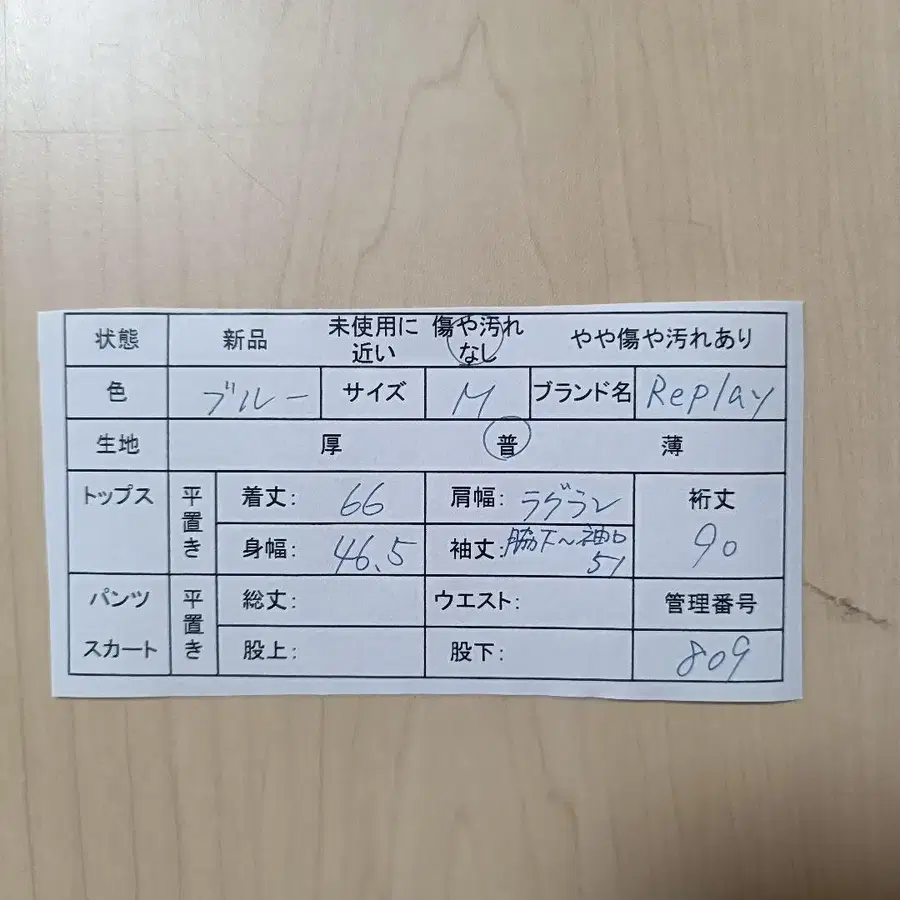 状態 新品 未使用に近い 傷や汚れなし やや傷や汚れあり
色 ブルー サイズ M ブランド名 Replay
生地 厚 普 薄
トップス 平置き 着丈: 66 肩幅: ラグラン 裄丈
身幅: 46.5 袖丈: 脇下~袖口 51 90
パンツ 平置き 総丈: ウエスト: 管理番号
スカート 股上: 股下: 809